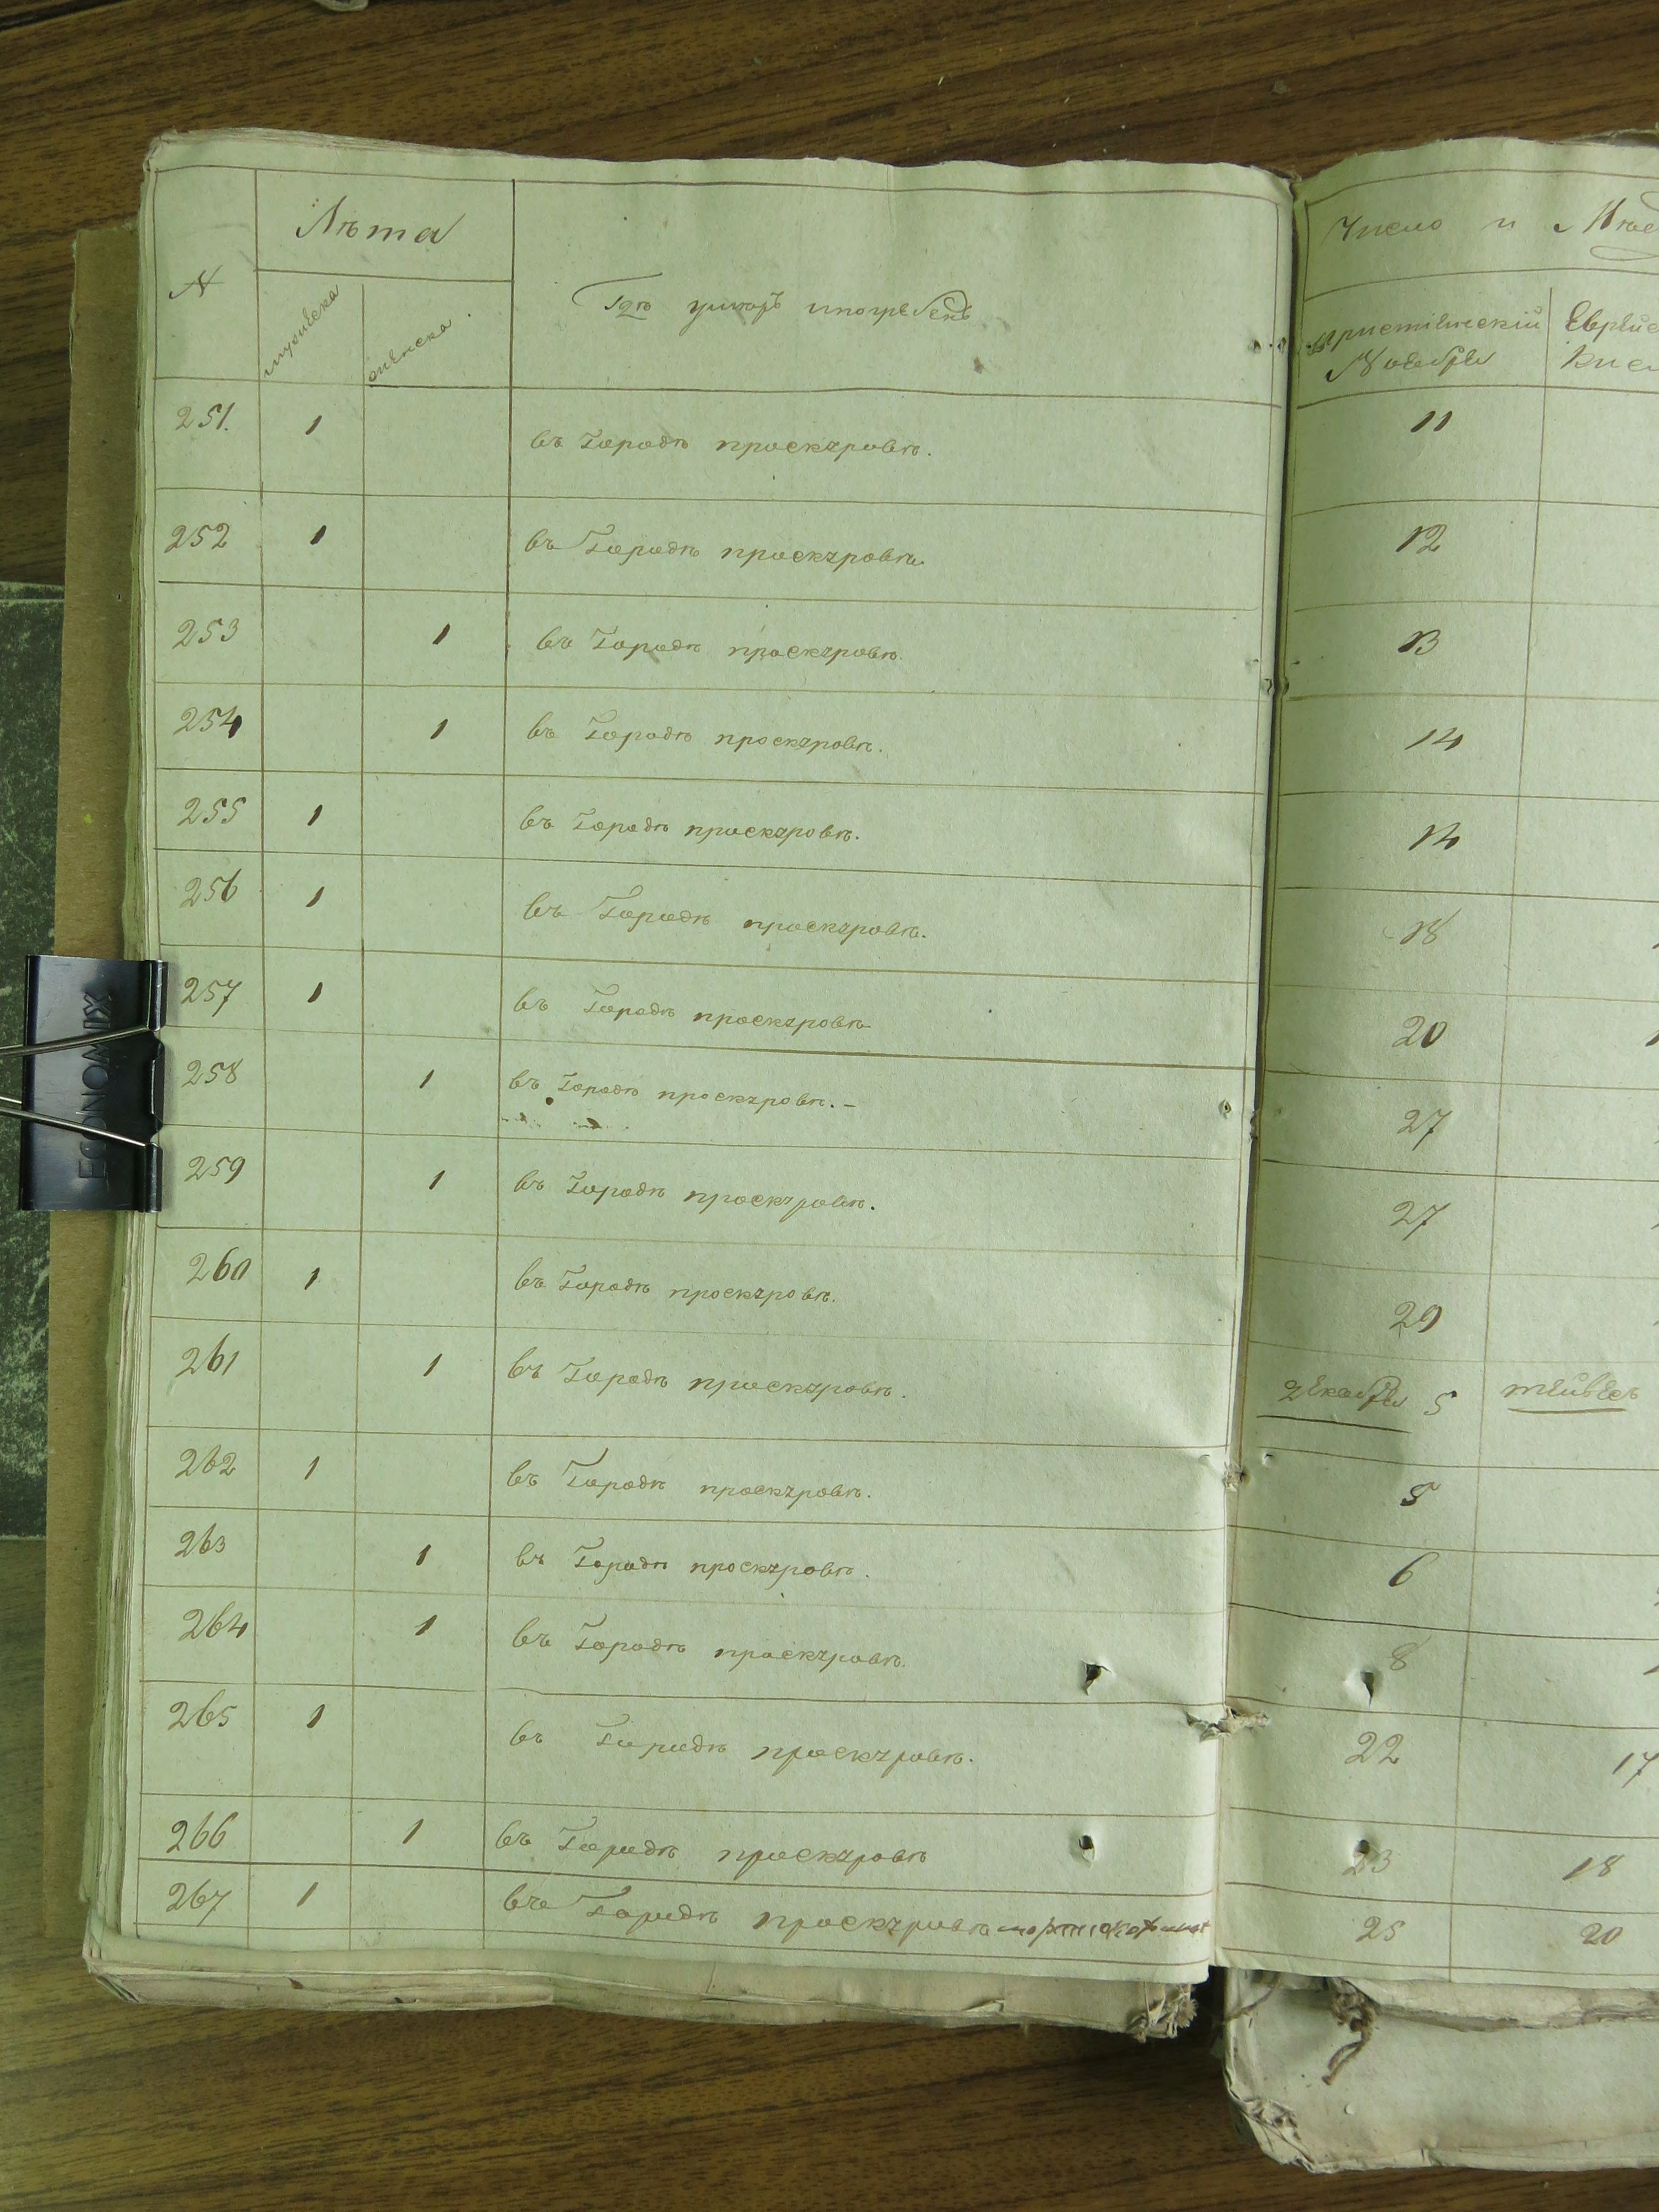 Лѣта
№ мужеска женска.
Гдѣ умеръ и погребенъ
251. 1 въ Городѣ проскуровѣ.
252 1 въ Городѣ проскуровѣ.
253 1 въ Городѣ проскуровѣ.
254 1 въ Городѣ проскуровѣ.
255 1 въ Городѣ проскуровѣ.
256 1 въ Городѣ проскуровѣ.
257 1 въ Городѣ проскуровѣ
258 1 въ Городѣ проскуровѣ. –
259 1 въ Городѣ проскуровѣ.
260 1 въ Городѣ проскуровѣ.
261 1 въ Городѣ проскуровѣ.
262 1 въ Городѣ проскуровѣ.
263 1 въ Городѣ проскуровѣ.
264 1 въ Городѣ проскуровѣ.
265 1 въ Городѣ проскуровѣ.
266 1 въ Городѣ проскуровѣ
267 1 въ Городѣ проскуровѣ
Число и
христіянскій
Ноября
11
12
13
14
14
18
20
27
27
29
декабря 5
5
6
8
22 17
23 18
25 20
ECONOMIX